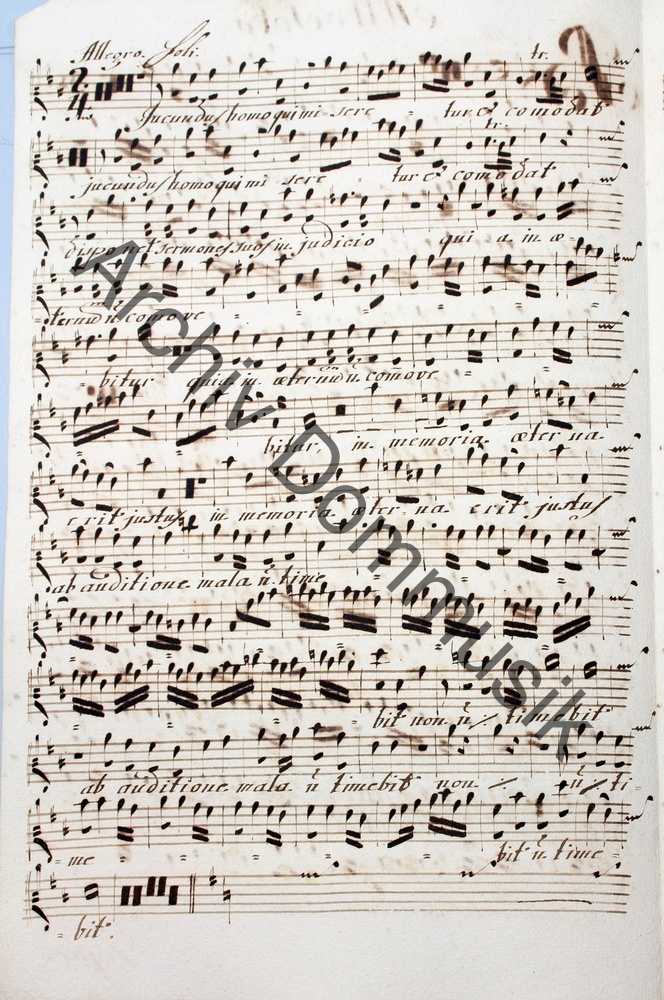 Allegro. Soli.
tr.
2
4
Jucundus homo qui mi- sere = tur et comodat
tr.
jucundus homo qui mi sere = tur et como dat
disponet sermones suos in judicio qui a in æ-
= ternũ ñ comove = = = = =
= bitur quia in æternũ ñ com̃ove = = =
bitur, in memoria æter na
erit justus in memoria æter na erit justus
ab auditione mala ñ time = = = =
= = = = = =
= = = bit non ñ ·/· timebit
ab auditione mala ñ timebit non ·/· ñ ·/· ti-
= me = = = = = bit ñ time =
= bit.
Archiv Dommusik